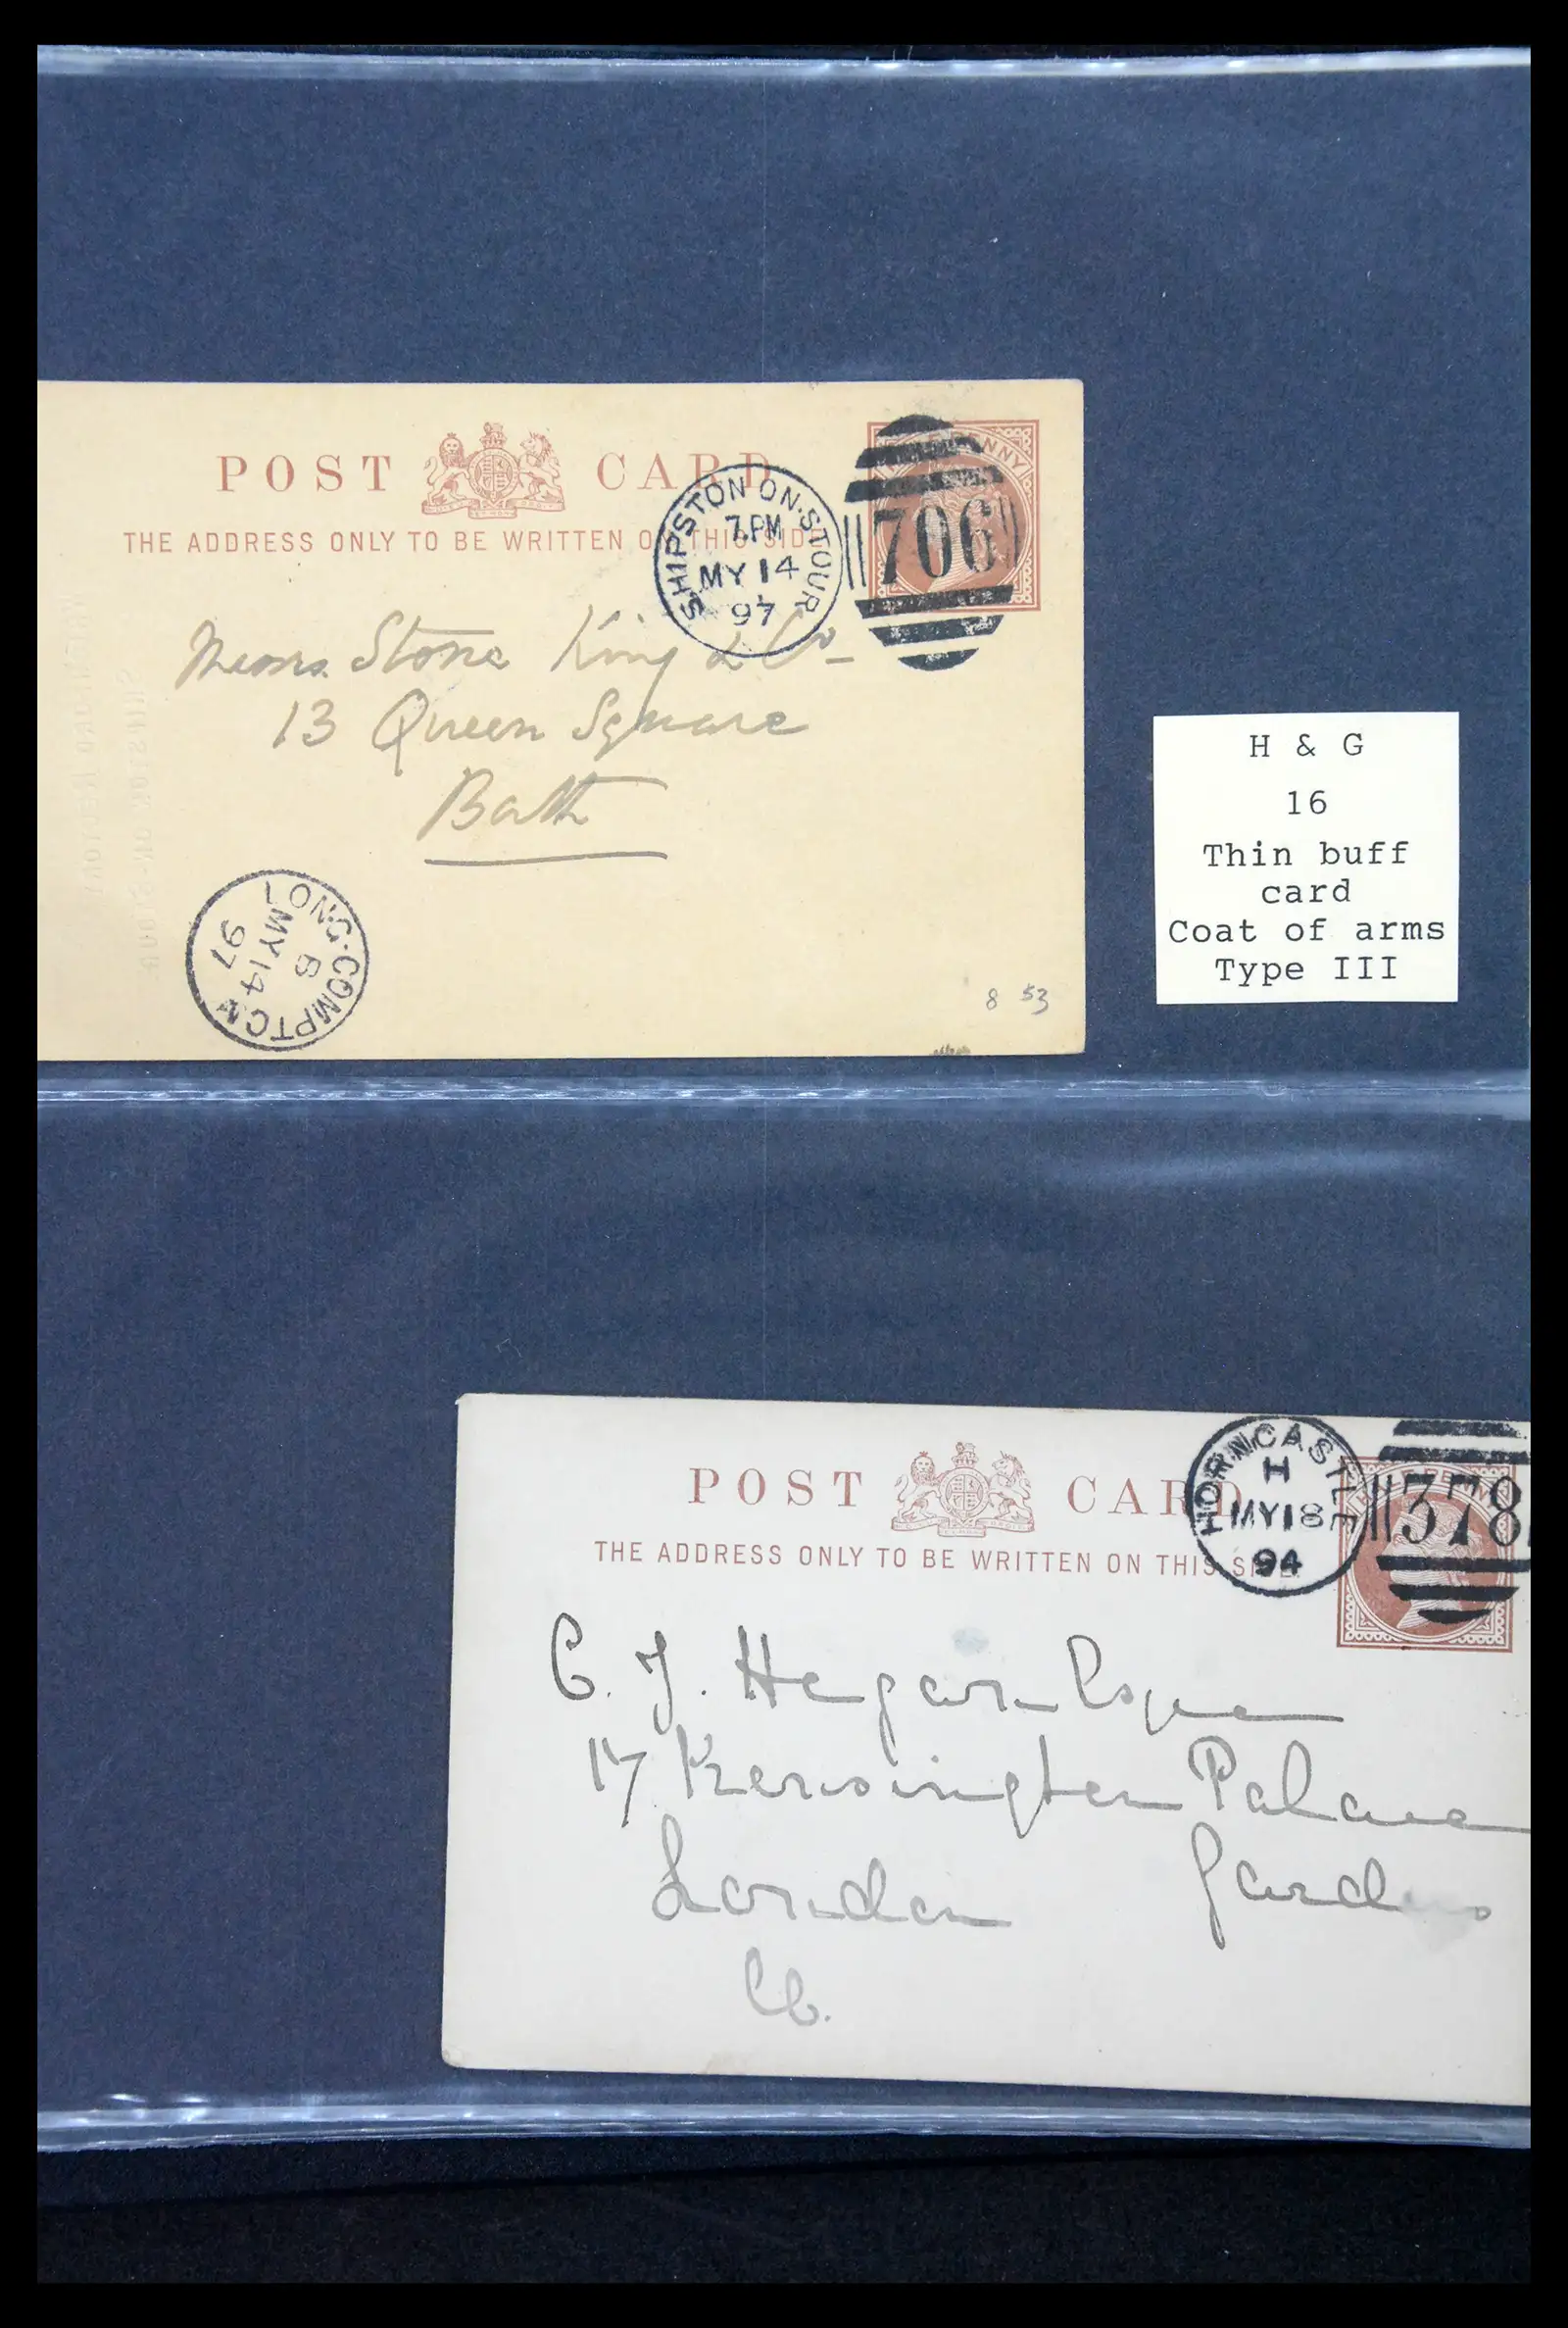 POST CARD
THE ADDRESS ONLY TO BE WRITTEN ON THIS SIDE
SHIPSTON ON-STOUR
7.PM
MY 14
97
706
Messrs. Stone King & Co
13 Queen Square
Bath
LONG-COMPTON
B
MY 14
97
8 53
H & G
16
Thin buff
card
Coat of arms
Type III
POST CARD
THE ADDRESS ONLY TO BE WRITTEN ON THIS SIDE.
HORNCASTLE
H
MY 18
94
378
C. J. Hegan Esquire
17 Kensington Palace
London Gardens